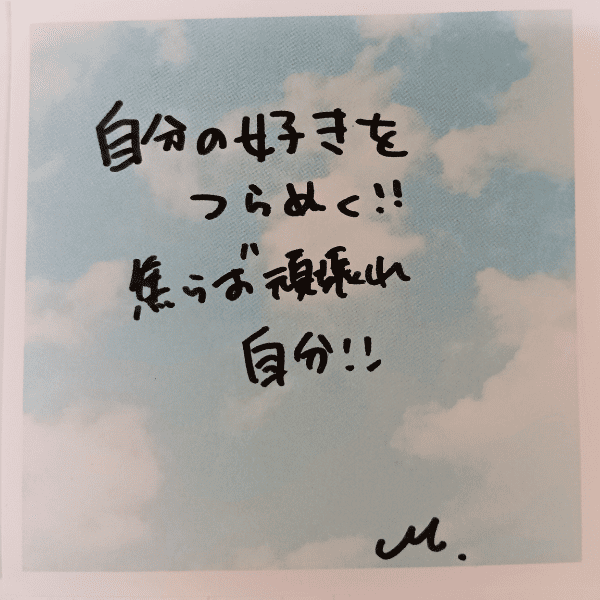 自分の好きを
つらぬく!!
焦らず頑張れ
自分!!
M.